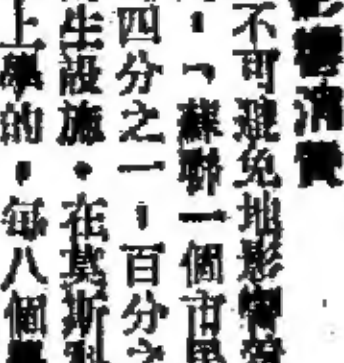 響消費
不可避免地影響
，「蘇聯一個市民
四分之一，百分之
生設施。在莫斯科
上學的，每八個